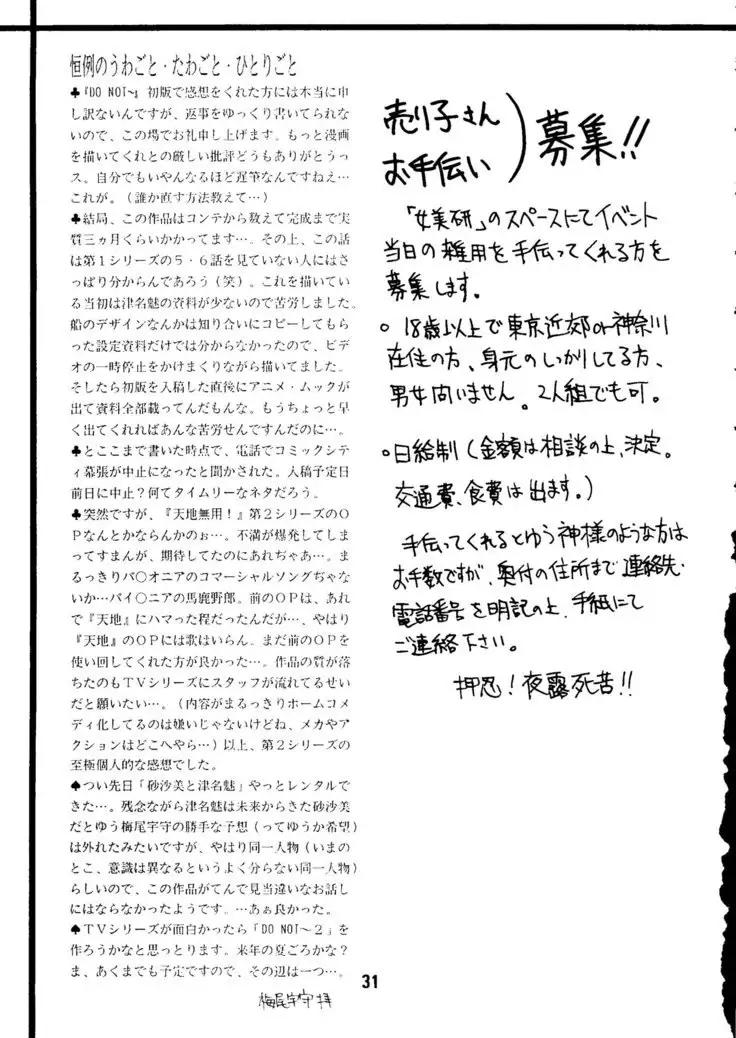 恒例のうわごと・たわごと・ひとりごと
♣『DO NOT～』初版で感想をくれた方には本当に申
し訳ないんですが、返事をゆっくり書いてられな
いので、この場でお礼申し上げます。もっと漫画
を描いてくれとの厳しい批評どうもありがとうっ
ス。自分でもいやんなるほど遅筆なんですねえ…
これが。（誰か直す方法教えて…）
♣結局、この作品はコンテから数えて完成まで実
質三ヵ月くらいかかってます…。その上、この話
は第１シリーズの５・６話を見ていない人にはさ
っぱり分からんであろう（笑）。これを描いてい
る当初は津名魅の資料が少ないので苦労しました。
船のデザインなんかは知り合いにコピーしてもら
った設定資料だけでは分からなかったので、ビデ
オの一時停止をかけまくりながら描いてました。
そしたら初版を入稿した直後にアニメ・ムックが
出て資料全部載ってんだもんな。もうちょっと早
く出てくれればあんな苦労せんですんだのに…。
♣とここまで書いた時点で、電話でコミックシテ
ィ幕張が中止になったと聞かされた。入稿予定日
前日に中止？何てタイムリーなネタだろう。
♠突然ですが、『天地無用！』第２シリーズのＯ
Ｐなんとかならんかのぉ…。不満が爆発してしま
ってすまんが、期待してたのにあれぢゃあ…。ま
るっきりパ〇オニアのコマーシャルソングぢゃな
いか…パイ〇ニアの馬鹿野郎。前のＯＰは、あれ
で『天地』にハマった程だったんだが…、やはり
『天地』のＯＰには歌はいらん。まだ前のＯＰを
使い回してくれた方が良かった…。作品の質が落
ちたのもＴＶシリーズにスタッフが流れてるせい
だと願いたい…。（内容がまるっきりホームコメ
ディ化してるのは嫌いじゃないけどね、メカやア
クションはどこへやら…）以上、第２シリーズの
至極個人的な感想でした。
♠つい先日「砂沙美と津名魅」やっとレンタルで
きた…。残念ながら津名魅は未来からきた砂沙美
だとゆう梅尾宇守の勝手な予想（ってゆうか希望）
は外れたみたいですが、やはり同一人物（いまの
とこ、意識は異なるというよく分らない同一人物）
らしいので、この作品がてんで見当違いなお話し
にはならなかったようです。…あぁ良かった。
♠ＴＶシリーズが面白かったら「DO NOT～２」を
作ろうかなと思っとります。来年の夏ごろかな？
ま、あくまでも予定ですので、その辺は一つ…。
梅尾宇守 拝
売り子さん
お手伝い
）募集!!
「女美研」のスペースにてイベント
当日の雑用を手伝ってくれる方を
募集します。
○ 18歳以上で東京近郊or神奈川
在住の方、身元のしっかりしてる方、
男女問いません。2人組でも可。
○日給制（金額は相談の上、決定。
交通費、食費は出ます。）
手伝ってくれるとゆう神様のような方は
お手数ですが、奥付の住所まで連絡先・
電話番号を明記の上、手紙にて
ご連絡下さい。
押忍！夜露死苦!!
31